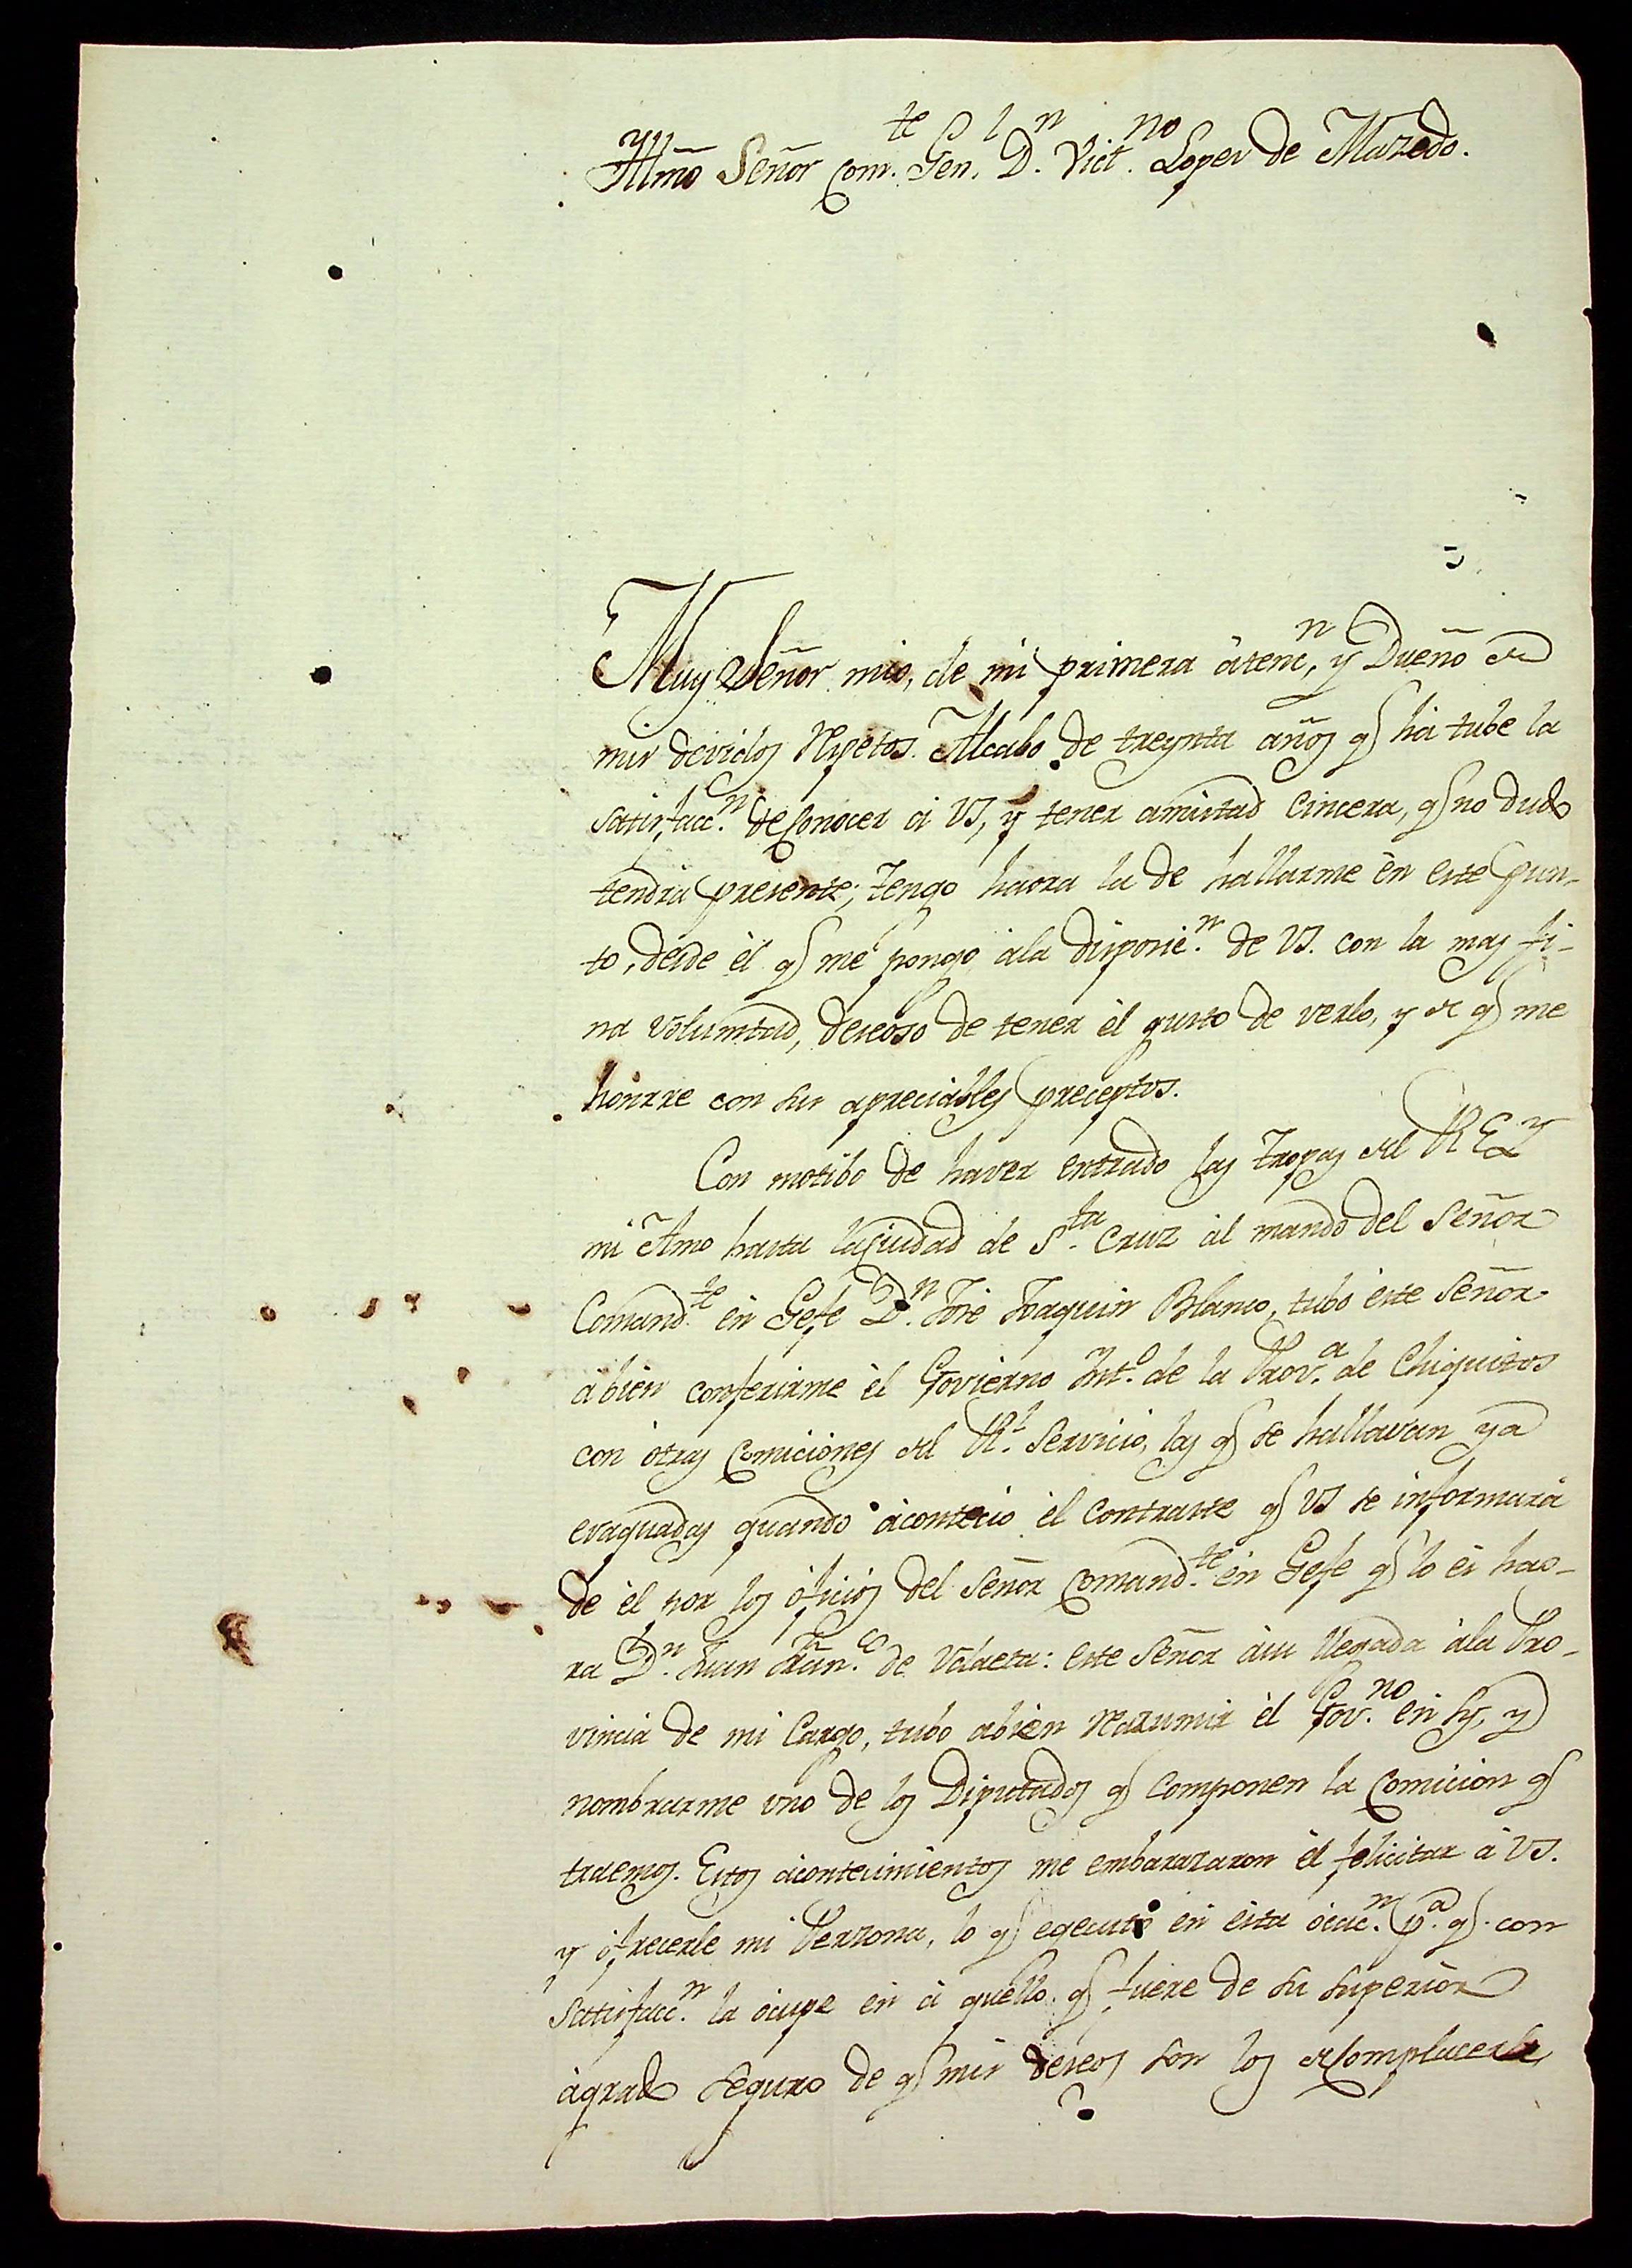 Yllmõ Señor Com.te Gen.l D.n Vict.no Lopez de Mazedo.
Muy Señor mio, de mi primera àtenc,n y Dueño de
mis devidos respetos. Alcabo de treynta años q.e ha tube la
satisfacc.n de Conocer à VS, y tener amistad cincera, q.e no dudo
tendra presente; Tengo haora la de hallarme èn este pun-
to, desde èl q.e me pongo àla disposic.n de VS. con la mas fi-
na voluntad, deseoso de tener èl gusto de verlo, y de q.e me
honrre con sus apreciables preceptos.
Con motibo de haver entrado las Tropas del REY
mi Amo hasta la Ciudad de S.ta Cruz àl mando del Señor
Comand.te èn Gefe D.n José Joaquin Blanco, tubo èste Señor
àbien conferirme èl Govierno Int.o de la Prov.a de Chiquitos
con òtras Comiciones del R.l Servicio, las q.e se hallavan ya
evaquadas quando àcontecio èl contraste q.e VS se informarà
de èl por los òficios del Señor Comand.te èn Gefe q.e lo es hao-
ra D.n Juan Fran.co de Valdeta: este Señor àsu llegada àla Pro-
vincia de mi Cargo, tubo abien reazumir èl Gov.no en sy, y
nombrarme uno de los Diputados q.e componen la Comicion q.e
traemos. Estos àcontecimientos me embarazaron èl felicitar à VS.
y òfrecerle mi Perzona, lo q.e egecuto en èsta òcac.n p.a q.e con
satisfacc.n la òcupe en à quello q.e fuere de su superior
àgrado seguro de q.e mis deseos son los de Complacerle,